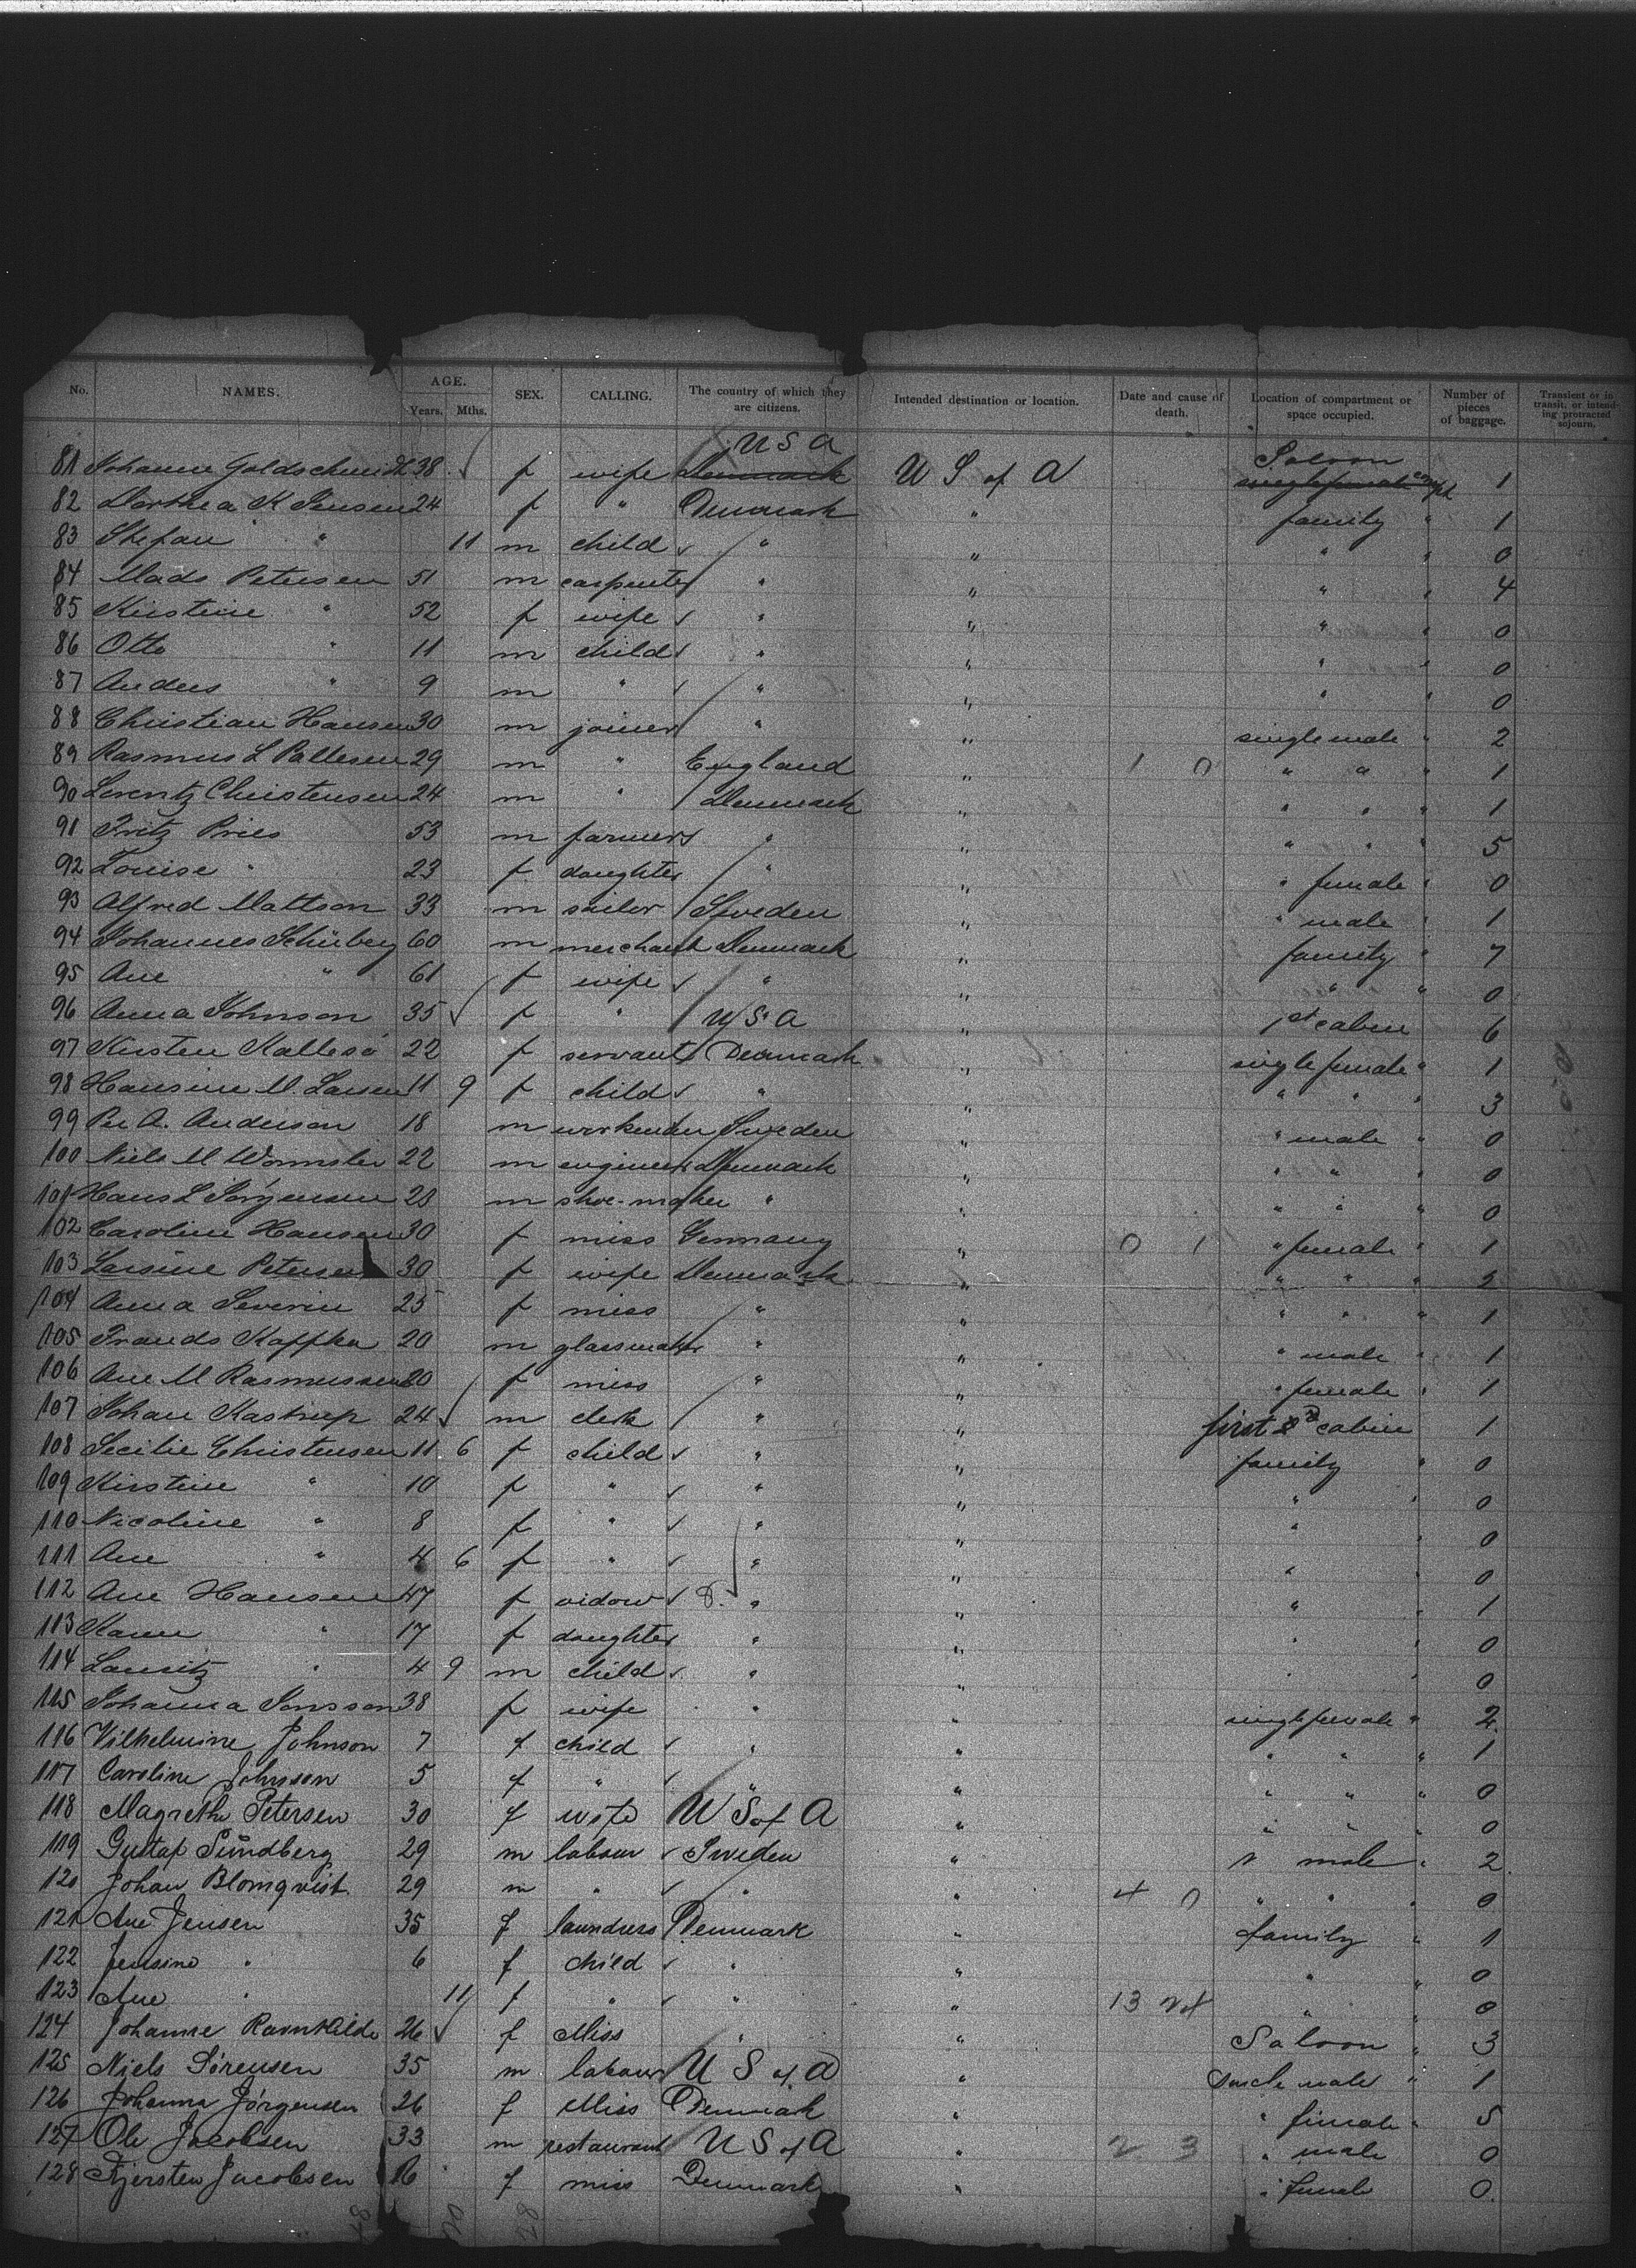 No. NAMES. AGE. Years. Mths. SEX. CALLING. The country of which they are citizens. Intended destination or location. Date and cause of death. Location of compartment or space occupied. Number of pieces of baggage. Transient or in transit, or intending protracted sojourn.
U S A Saloon
81 Johanne Goldschmidt 38 f wife Denmark U S of A single female compt 1
82 Dorthea K Jensen 24 f " Denmark " family " 1
83 Stefan " 11 m child " " " " 0
84 Mads Petersen 51 m carpenter " " " " 4
85 Kirstine " 52 f wife " " " " 0
86 Otto " 11 m child " " " " 0
87 Anders " 9 m " " " " " 0
88 Christian Hansen 30 m joiner " " single male " 2
89 Rasmus L Pallesen 29 m " England " 1 0 " " " 1
90 Lorentz Christensen 24 m " Denmark " " " " 1
91 Fritz Pries 53 m farmer " " " " " 5
92 Louise " 23 f daughter " " " female " 0
93 Alfred Mattson 33 m sailor Sweden " " male " 1
94 Johannes Schüberg 60 m merchant Denmark " family " 7
95 Ane " 61 f wife " " " " 0
96 Anna Johnson 35 f " U S A " 1st cabin 6
97 Kirsten Kallesö 22 f servant Denmark " single female " 1
98 Hansine M. Larsen 11 9 f child " " " " " 3
99 Per A. Anderson 18 m workman Sweden " " male " 0
100 Niels M Wormslev 22 m engineer Denmark " " " " 0
101 Hans L Jörgensen 28 m shoe-maker " " " " " 0
102 Caroline Hansen 30 f miss Germany " 0 1 " female " 1
103 Larsine Petersen 30 f wife Denmark " " " " 2
104 Anna Severin 25 f miss " " " " " 1
105 Frands Kaffka 20 m glassmaker " " " male " 1
106 Ane M Rasmussen 20 f miss " " " female " 1
107 Johan Kastrup 24 m clerk " " first cabin 1
108 Secilie Christensen 11 6 f child " " family " 0
109 Kirstine " 10 f " " " " " 0
110 Nicoline " 8 f " " " " 0
111 Ane " 4 6 f " " " " 0
112 Ane Hansen 47 f vidow " " " 1
113 Karen " 17 f daughter " " " 0
114 Lauritz " 4 9 m child " " " " 0
115 Johanna Jonsson 38 f wife " " single female " 2
116 Vilhelmine Johnson 7 f child " " " " " 1
117 Caroline Johnson 5 f " " " " " " 0
118 Magrethe Petersen 30 f wife U S of A " " " " 0
119 Gustaf Sundberg 29 m labour Sweden " " male " 2
120 Johan Blomqvist 29 m " " " 4 0 " " " 0
121 Ane Jensen 35 f laundress Denmark " family " 1
122 Jensine " 6 f child " " " " 0
123 Ane " 11 f " " " 13 " " 0
124 Johanne Ravnkilde 26 f Miss " " Saloon " 3
125 Niels Sörensen 35 m labour U S of A " single male " 1
126 Johanna Jörgensen 26 f Miss Denmark " " female " 5
127 Ole Jacobsen 33 m restaurant U S of A " 2 3 " male 0
128 Kjersten Jacobsen 16 f miss Denmark " " female 0